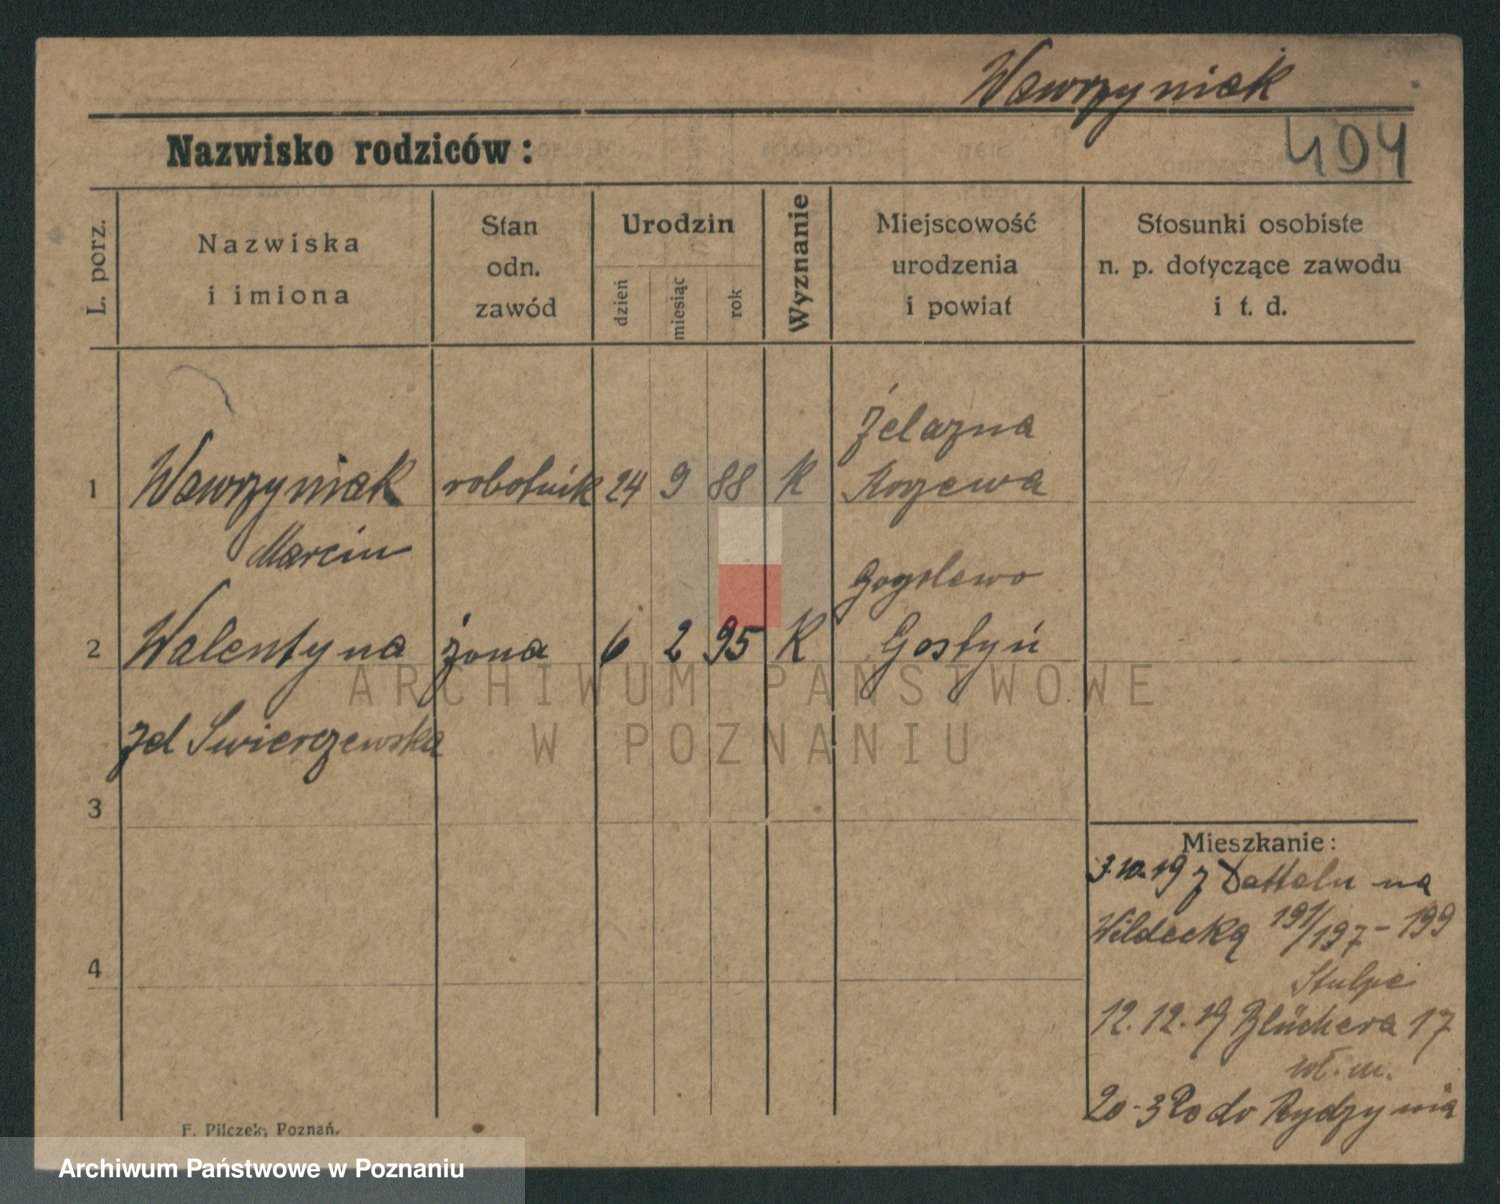 Wawrzyniak
404
Nazwisko rodziców:
L. porz.
Nazwiska
i imiona
Stan
odn.
zawód
Urodzin
dzień
miesiąc
rok
Wyznanie
Miejscowość
urodzenia
i powiat
Stosunki osobiste
n. p. dotyczące zawodu
i t. d.
Żelazna
1 Wawrzyniak robotnik 24 9 88 K
Marcin
2 Walentyna żona 6 2 95 K Gostyń
zd Swierczewska
3
4
Mieszkanie:
3.10.19 z Datteln na
Wildecką 191/197-199
12.12.19 Blüchera 17
wł. m.
20-3 20 do Rydzynia
F. Pilczek, Poznań.
ARCHIWUM PAŃSTWOWE
W POZNANIU
Archiwum Państwowe w Poznaniu